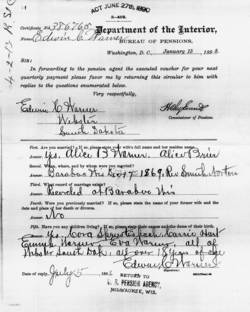 ACT JUNE 27th, 1890
3-448.
Certificate No. 586765
Edwin C Warner
Department of the Interior,
BUREAU OF PENSIONS,
Washington, D. C., January 15, 1898.
In forwarding to the pension agent the executed voucher for your next
quarterly payment please favor me by returning this circular to him with
replies to the questions enumerated below.
Very respectfully,
Edwin C Warner
Webster
South Dakota
Commissioner of Pensions.
First. Are you married? If so, please state your wife's full name and her maiden name.
Yes, Alice B Warner. Alice
Second. When, where, and by whom were you married?
Baraboo Wis 1869, Rev
Third. What record of marriage exists?
Recorded at Baraboo Wis
Fourth. Were you previously married? If so, please state the name of your former wife and the
date and place of her death or divorce.
No
Fifth. Have you any children living? If so, please state their names and the dates of their birth.
Yes, Cora Carrie
Warner Eva Warner, all of
Webster South Dak. all over 18 years of age
Edwin C Warner
Date of reply, July 5
RETURN TO
U. S. PENSION AGENCY,
MILWAUKEE, WIS.